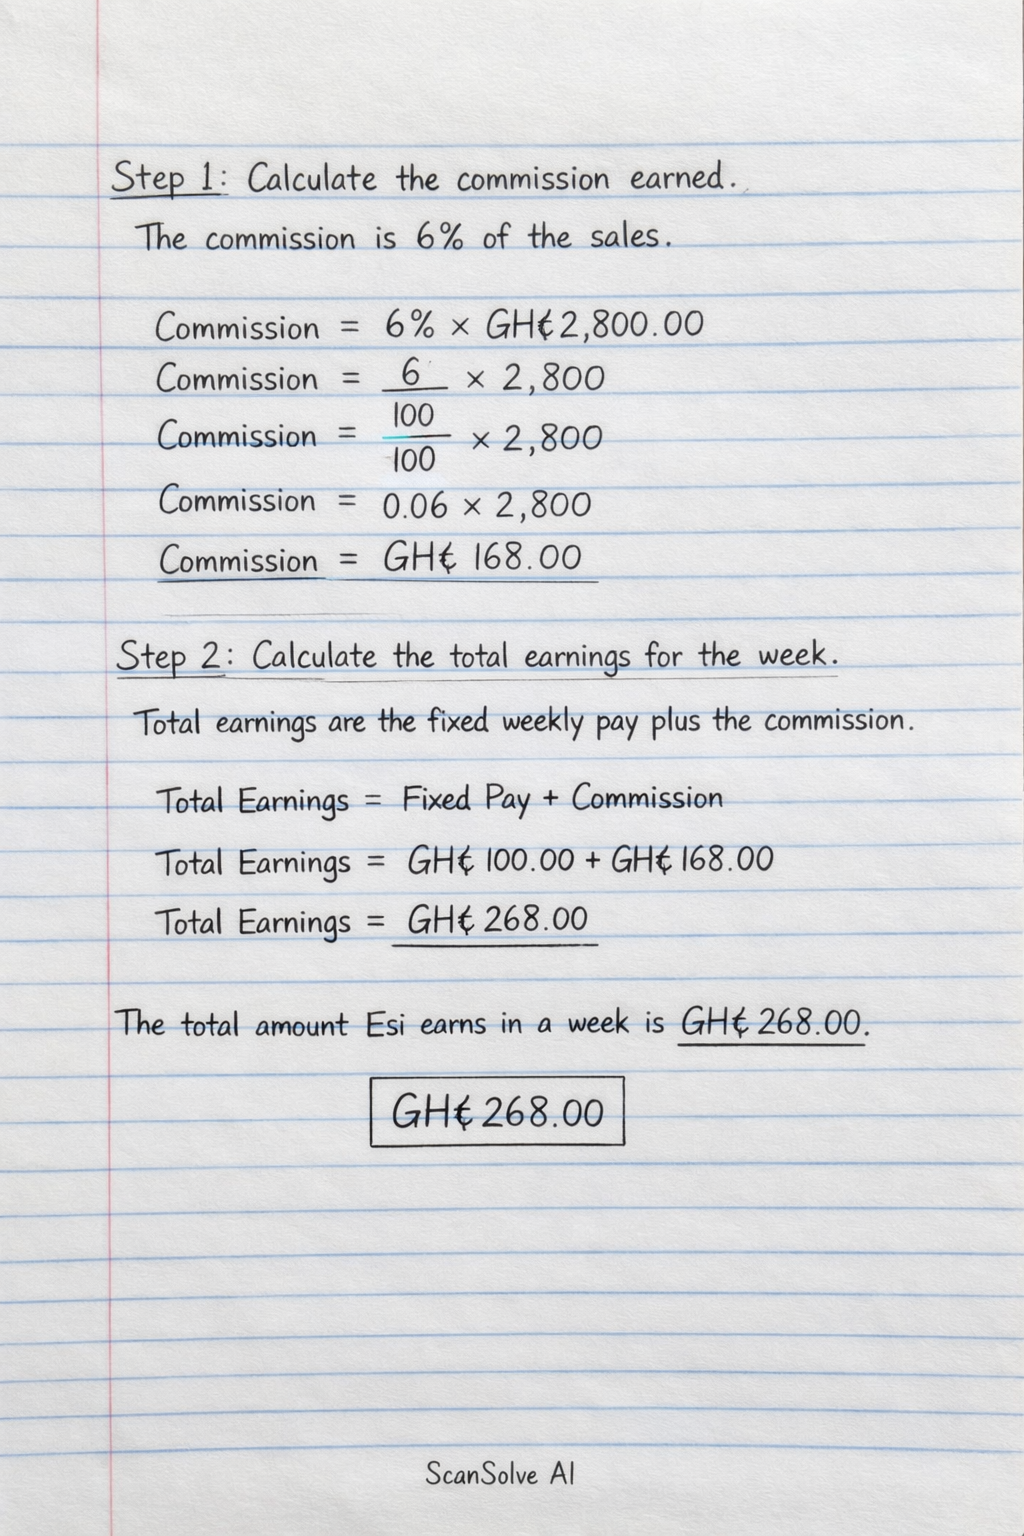 Step 1: Calculate the commission earned.
The commission is 6% of the sales.
Commission = 6% × GH₵2,800.00
Commission = 6/100 × 2,800
Commission = 100/100 × 2,800
Commission = 0.06 × 2,800
Commission = GH₵ 168.00
Step 2: Calculate the total earnings for the week.
Total earnings are the fixed weekly pay plus the commission.
Total Earnings = Fixed Pay + Commission
Total Earnings = GH₵ 100.00 + GH₵ 168.00
Total Earnings = GH₵ 268.00
The total amount Esi earns in a week is GH₵ 268.00.
GH₵ 268.00
ScanSolve AI